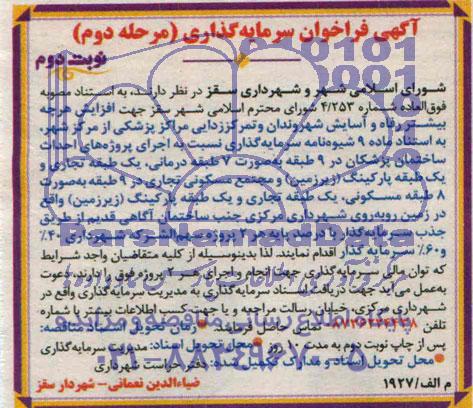 آگهی فراخوان سرمایه‌گذاری (مرحله دوم)
نوبت دوم
شورای اسلامی شهر و شهرداری سقز در نظر دارند، به استناد مصوبه
فوق‌العاده شماره ۴/۲۵۳ شورای محترم اسلامی شهر سقز جهت افزایش هرچه
بیشتر رفاه و آسایش شهروندان و تمرکززدایی مراکز پزشکی از مرکز شهر،
به استناد ماده ۹ شیوه‌نامه سرمایه‌گذاری نسبت به اجرای پروژه‌های احداث
ساختمان پزشکان در ۹ طبقه به‌صورت ۷ طبقه درمانی، یک طبقه تجاری و
یک طبقه پارکینگ (زیرزمین) و مجتمع مسکونی تجاری در ۹ طبقه به‌صورت
۸ طبقه مسکونی، یک طبقه تجاری و یک طبقه پارکینگ (زیرزمین) واقع
در زمین روبه‌روی شهرداری مرکزی جنب ساختمان آگاهی قدیم از طریق
جذب سرمایه‌گذار با درصد پایه هر ۲ پروژه سهم‌الشرکه شهرداری ۴۰٪
و ۶۰٪ سرمایه‌گذار اقدام نمایند. لذا بدینوسیله از کلیه متقاضیان واجد شرایط
که توان مالی سرمایه‌گذاری جهت انجام و اجرای هر ۲ پروژه فوق را دارند، دعوت
به‌عمل می‌آید جهت دریافت اسناد سرمایه‌گذاری به مدیریت سرمایه‌گذاری واقع در
شهرداری مرکزی، خیابان رسالت مراجعه و یا جهت کسب اطلاعات بیشتر با شماره
تلفن تماس حاصل فرمایند. زمان تحویل اسناد مناقصه:
پس از چاپ نوبت دوم به مدت ۱۰ روز محل تحویل اسناد: مدیریت سرمایه‌گذاری
محل تحویل اسناد و مدارک تکمیل شده: دفتر حراست شهرداری
ضیاءالدین نعمانی - شهردار سقز
م الف/۱۹۲۷
ParsNamadData